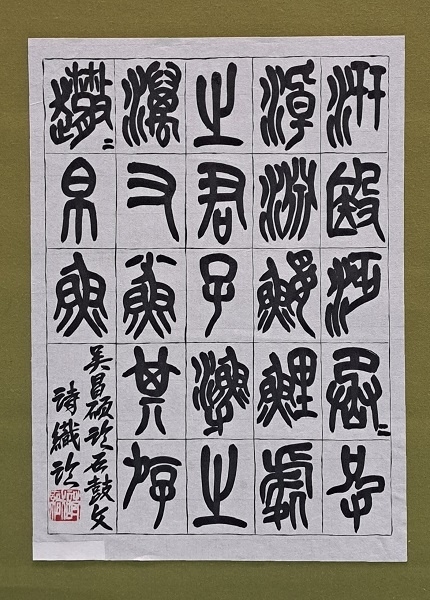 汧殹沔丞=皮
淖淵鰋鯉處
之君子漁之
澫又小魚其斿
帛魚
吴昌碩臨石鼓文
詩織臨